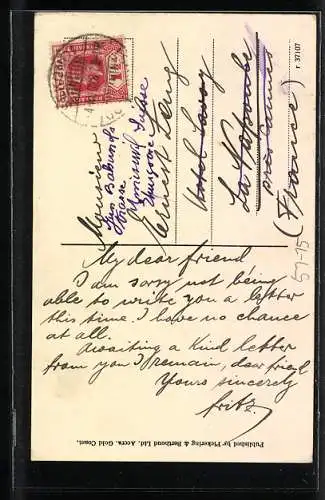 Monsieur
Ernest Leng
Hotel Savoy
La Napoule
près Cannes
(France)
r 37107
57-15
My dear friend
I am sorry not being
able to write you a letter
this time. I have no chance
at all.
Awaiting a kind letter
from you I remain, dear friend
Yours sincerely
Fritz.
Published by Pickering & Berthoud Ltd. Accra. Gold Coast.